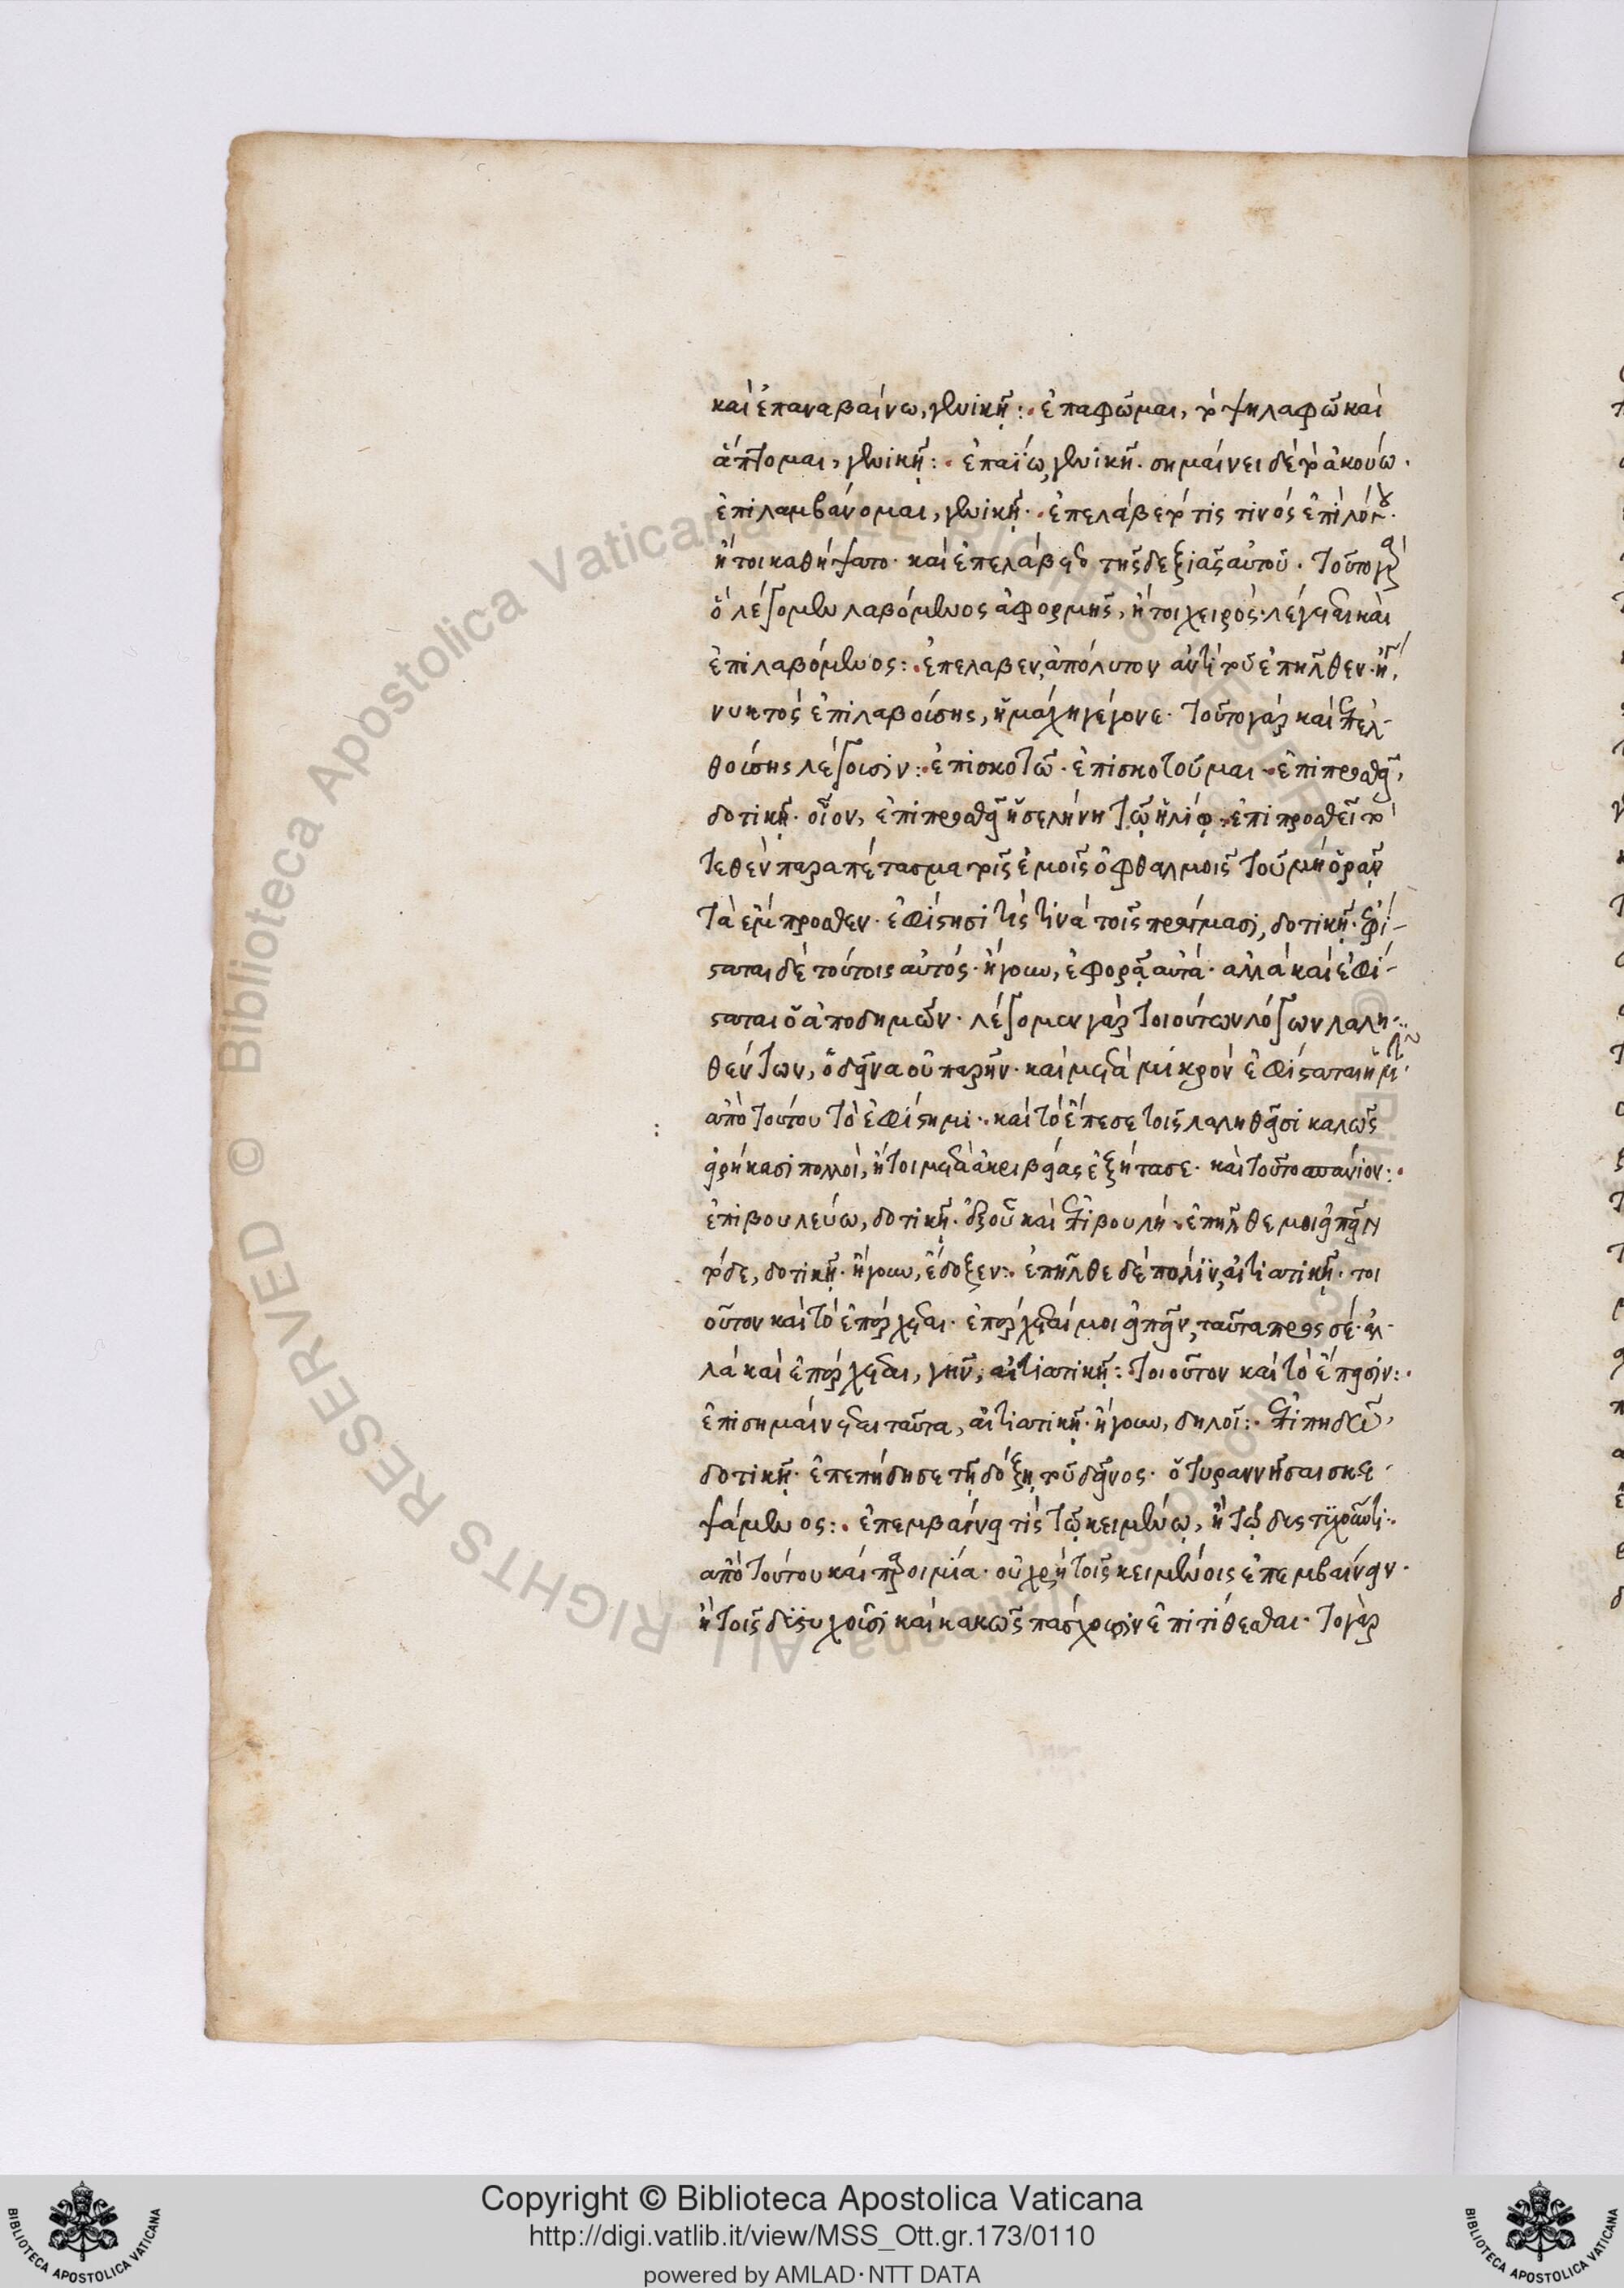 καὶ ἐπαναβαίνω, γενικῇ: ἐπαφῶμαι, τὸ ψηλαφῶ καὶ
ἅπτομαι, γενικῇ: ἐπαΐω, γενικῇ. σημαίνει δὲ τὸ ἀκούω.
ἐπιλαμβάνομαι, γενικῇ. ἐπελάβετό τις τινὸς ἐπὶ λόγου.
ἤτοι καθήψατο. καὶ ἐπελάβετο τῆς δεξιᾶς αὐτοῦ. τοῦτο γὰρ
ὃ λέγομεν λαβόμενος ἀφορμῆς, ἤτοι χειρός. λέγεται καὶ
ἐπιλαβόμενος: ἐπέλαβεν, ἀπόλυτον ἀντὶ τοῦ ἐπῆλθεν.
νυκτὸς ἐπιλαβούσης, ἡ μάχη γέγονε. τοῦτο γὰρ καὶ ἐπελ-
θούσης λέγουσιν: ἐπισκοτῶ. ἐπισκοτοῦμαι. ἐπιπροσθεῖ,
δοτικῇ. οἷον, ἐπιπροσθεῖ ἡ σελήνη τῷ ἡλίῳ. ἐπιπροσθεῖ τὸ
τεθὲν παραπέτασμα τοῖς ἐμοῖς ὀφθαλμοῖς τοῦ μὴ ὁρᾶν
τὰ ἔμπροσθεν. ἐφίστησί τίς τινα τοῖς πράγμασι, δοτικῇ. ἐφί-
σταται δὲ τούτοις αὐτός. ἤγουν, ἐφορᾷ αὐτά. ἀλλὰ καὶ ἐφί-
σταται ὁ ἀποδημῶν. λέγομεν γὰρ τοιούτων λόγων λαλη-
θέντων, ὁ δεῖνα οὐ παρῆν. καὶ μετὰ μικρὸν ἐφίσταται ἡμῖν.
ἀπὸ τούτου τὸ ἐφίστημι. καὶ τὸ ἐπέστησε τοῖς λαληθεῖσι καλῶς
εἰρήκασι πολλοὶ, ἤτοι μετὰ ἀκριβείας ἐξήτασε. καὶ τοῦτο σπάνιον:
ἐπιβουλεύω, δοτικῇ. ἐξ οὗ καὶ ἐπιβουλή. ἐπῆλθέ μοι εἰπεῖν
τόδε, δοτικῇ. ἤγουν, ἔδοξεν: ἐπῆλθε δὲ πόλιν, αἰτιατικῇ. τοι
οῦτον καὶ τὸ ἐπέρχεται. ἐπέρχεταί μοι εἰπεῖν, ταῦτα πρὸς σέ. ἀλ-
λὰ καὶ ἐπέρχεται, γῆν, αἰτιατικῇ: τοιοῦτον καὶ τὸ ἔπεισιν:
ἐπισημαίνεται ταῦτα, αἰτιατικῇ. ἤγουν, δηλοῖ: ἐπιπηδῶ,
δοτικῇ. ἐπεπήδησε τῇ δόξῃ τοῦ δεῖνος. ὁ τυραννῆσαι σκε-
ψάμενος: ἐπεμβαίνει τίς τῷ κειμένῳ, ἢ τῷ δυστυχοῦντι.
ἀπὸ τούτου καὶ παροιμία. οὐ χρὴ τοῖς κειμένοις ἐπεμβαίνειν.
ἢ τοῖς δυστυχοῦσι καὶ κακῶς πάσχουσιν ἐπιτίθεσθαι. τὸ γὰρ
Copyright © Biblioteca Apostolica Vaticana
http://digi.vatlib.it/view/MSS_Ott.gr.173/0110
powered by AMLAD·NTT DATA